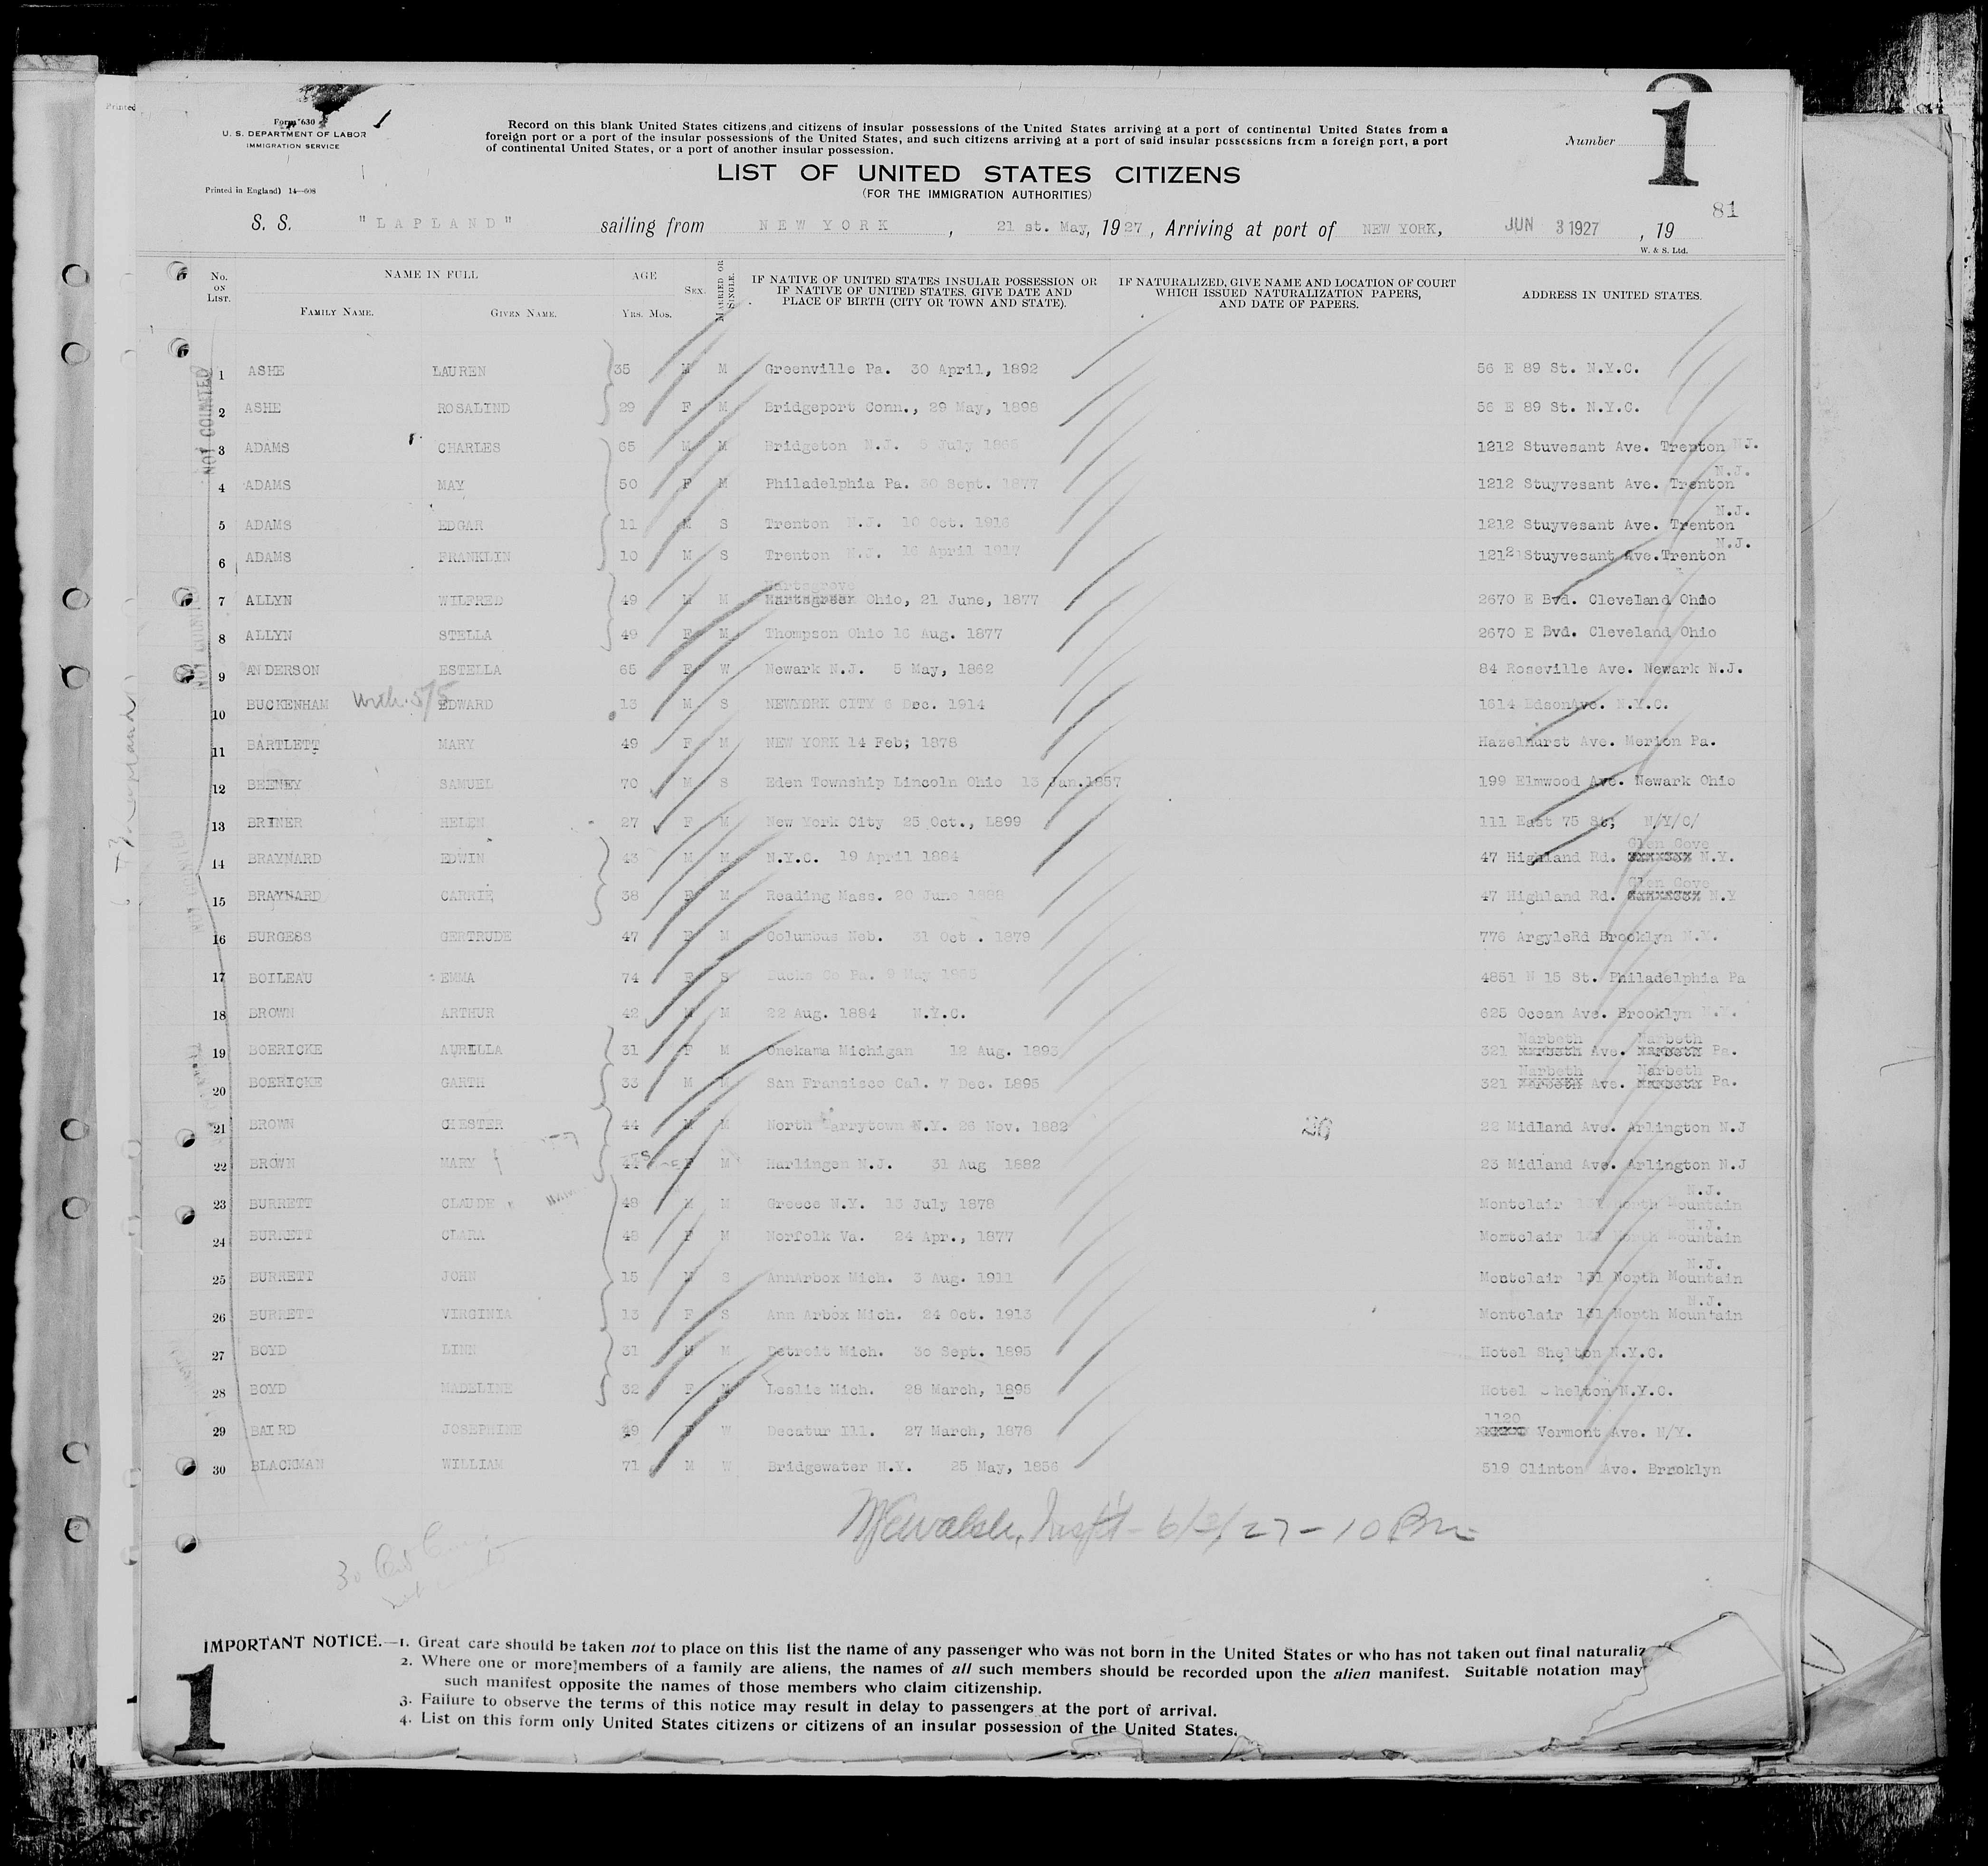 Printed
Form 630
U. S. DEPARTMENT OF LABOR
IMMIGRATION SERVICE
1
Record on this blank United States citizens and citizens of insular possessions of the United States arriving at a port of continental United States from a
foreign port or a port of the insular possessions of the United States, and such citizens arriving at a port of said insular possessions from a foreign port, a port
of continental United States, or a port of another insular possession.
Number 1
LIST OF UNITED STATES CITIZENS
(FOR THE IMMIGRATION AUTHORITIES)
Printed in England) 14—608
81
S. S. "LAPLAND" sailing from NEW YORK, 21 st. May, 1927, Arriving at port of NEW YORK, JUN 3 1927, 19
W. & S. Ltd.
No. ON LIST. NAME IN FULL AGE SEX. MARRIED OR SINGLE. IF NATIVE OF UNITED STATES INSULAR POSSESSION OR IF NATIVE OF UNITED STATES, GIVE DATE AND PLACE OF BIRTH (CITY OR TOWN AND STATE). IF NATURALIZED, GIVE NAME AND LOCATION OF COURT WHICH ISSUED NATURALIZATION PAPERS, AND DATE OF PAPERS. ADDRESS IN UNITED STATES.
FAMILY NAME. GIVEN NAME. YRS. MOS.
NOT COUNTED
1 ASHE LAUREN 35 M M Greenville Pa. 30 April, 1892 56 E 89 St. N.Y.C.
2 ASHE ROSALIND 29 F M Bridgeport Conn., 29 May, 1898 56 E 89 St. N.Y.C.
3 ADAMS CHARLES 65 M M Bridgeton N.J. July 1212 Stuvesant Ave. Trenton N.J.
4 ADAMS MAY 50 F M Philadelphia Pa. 30 Sept. 1877 1212 Stuyvesant Ave. Trenton N.J.
5 ADAMS EDGAR 11 M S Trenton N.J. 10 Oct. 1916 1212 Stuyvesant Ave. Trenton N.J.
6 ADAMS FRANKLIN 10 M S Trenton N.J. 16 April 1917 1212 Stuyvesant Ave.Trenton N.J.
7 ALLYN WILFRED 49 M M Hartsgrove Ohio, 21 June, 1877 2670 E Bvd. Cleveland Ohio
8 ALLYN STELLA 49 F M Thompson Ohio 16 Aug. 1877 2670 E Bvd. Cleveland Ohio
9 ANDERSON ESTELLA 65 F W Newark N.J. 5 May, 1862 84 Roseville Ave. Newark N.J.
10 BUCKENHAM with 5/5 EDWARD 13 M S NEWYORK CITY 6 Dec. 1914 1614 EdsonAve. N.Y.C.
11 BARTLETT MARY 49 F M NEW YORK 14 Feb; 1878 Hazelhurst Ave. Merion Pa.
12 BEENEY SAMUEL 70 M S Eden Township Lincoln Ohio 13 Jan.1857 199 Elmwood Ave. Newark Ohio
13 BRINER HELEN 27 F M New York City 25 Oct., L899 111 East 75 St; N/Y/C/
14 BRAYNARD EDWIN 43 M M N.Y.C. 19 April 1884 47 Highland Rd. Glen Cove N.Y.
15 BRAYNARD CARRIE 38 F M Reading Mass. 20 June 1888 47 Highland Rd. Glen Cove N.Y
16 BURGESS GERTRUDE 47 F M Columbus Neb. 31 Oct . 1879 776 ArgyleRd Brooklyn N.Y.
17 BOILEAU EMMA 74 F S Bucks Co Pa. 9 May 4851 N 15 St. Philadelphia Pa
18 BROWN ARTHUR 42 M M 22 Aug. 1884 N.Y.C. 625 Ocean Ave. Brooklyn N.Y.
19 BOERICKE AURELLA 31 F M Onekama Michigan 12 Aug. 1895 321 Narbeth Ave. Narbeth Pa.
20 BOERICKE GARTH 33 M M San Franzisco Cal. 7 Dec. L895 321 Narbeth Ave. Narbeth Pa.
21 BROWN CHESTER 44 M M North Tarrytown N.Y. 26 Nov. 1882 22 Midland Ave. Arlington N.J
22 BROWN MARY 44 F M Harlingen N.J. 31 Aug 1882 23 Midland Ave. Arlington N.J
23 BURRETT CLAUDE 48 M M Greece N.Y. 13 July 1878 Montclair 131 North Mountain N.J.
24 BURRETT CLARA 48 F M Norfolk Va. 24 Apr., 1877 Montclair 131 North Mountain N.J.
25 BURRETT JOHN 15 M S AnnArbox Mich. 3 Aug. 1911 Montclair 131 North Mountain N.J.
26 BURRETT VIRGINIA 13 F S Ann Arbox Mich. 24 Oct. 1913 Montclair 131 North Mountain N.J.
27 BOYD LINN 31 M M Detroit Mich. 30 Sept. 1895 Hotel Shelton N.Y.C.
28 BOYD MADELINE 32 F M Leslie Mich. 28 March, 1895 Hotel Shelton N.Y.C.
29 BAIRD JOSEPHINE 49 F W Decatur Ill. 27 March, 1878 1120 Vermont Ave. N/Y.
30 BLACKMAN WILLIAM 71 M W Bridgewater N.Y. 25 May, 1856 519 Clinton Ave. Brroklyn
Walsh, Insp't - 6/3/27 - 10 Pm
30
IMPORTANT NOTICE.—1. Great care should be taken not to place on this list the name of any passenger who was not born in the United States or who has not taken out final naturaliz
2. Where one or more members of a family are aliens, the names of all such members should be recorded upon the alien manifest. Suitable notation may
such manifest opposite the names of those members who claim citizenship.
3. Failure to observe the terms of this notice may result in delay to passengers at the port of arrival.
4. List on this form only United States citizens or citizens of an insular possession of the United States.
1